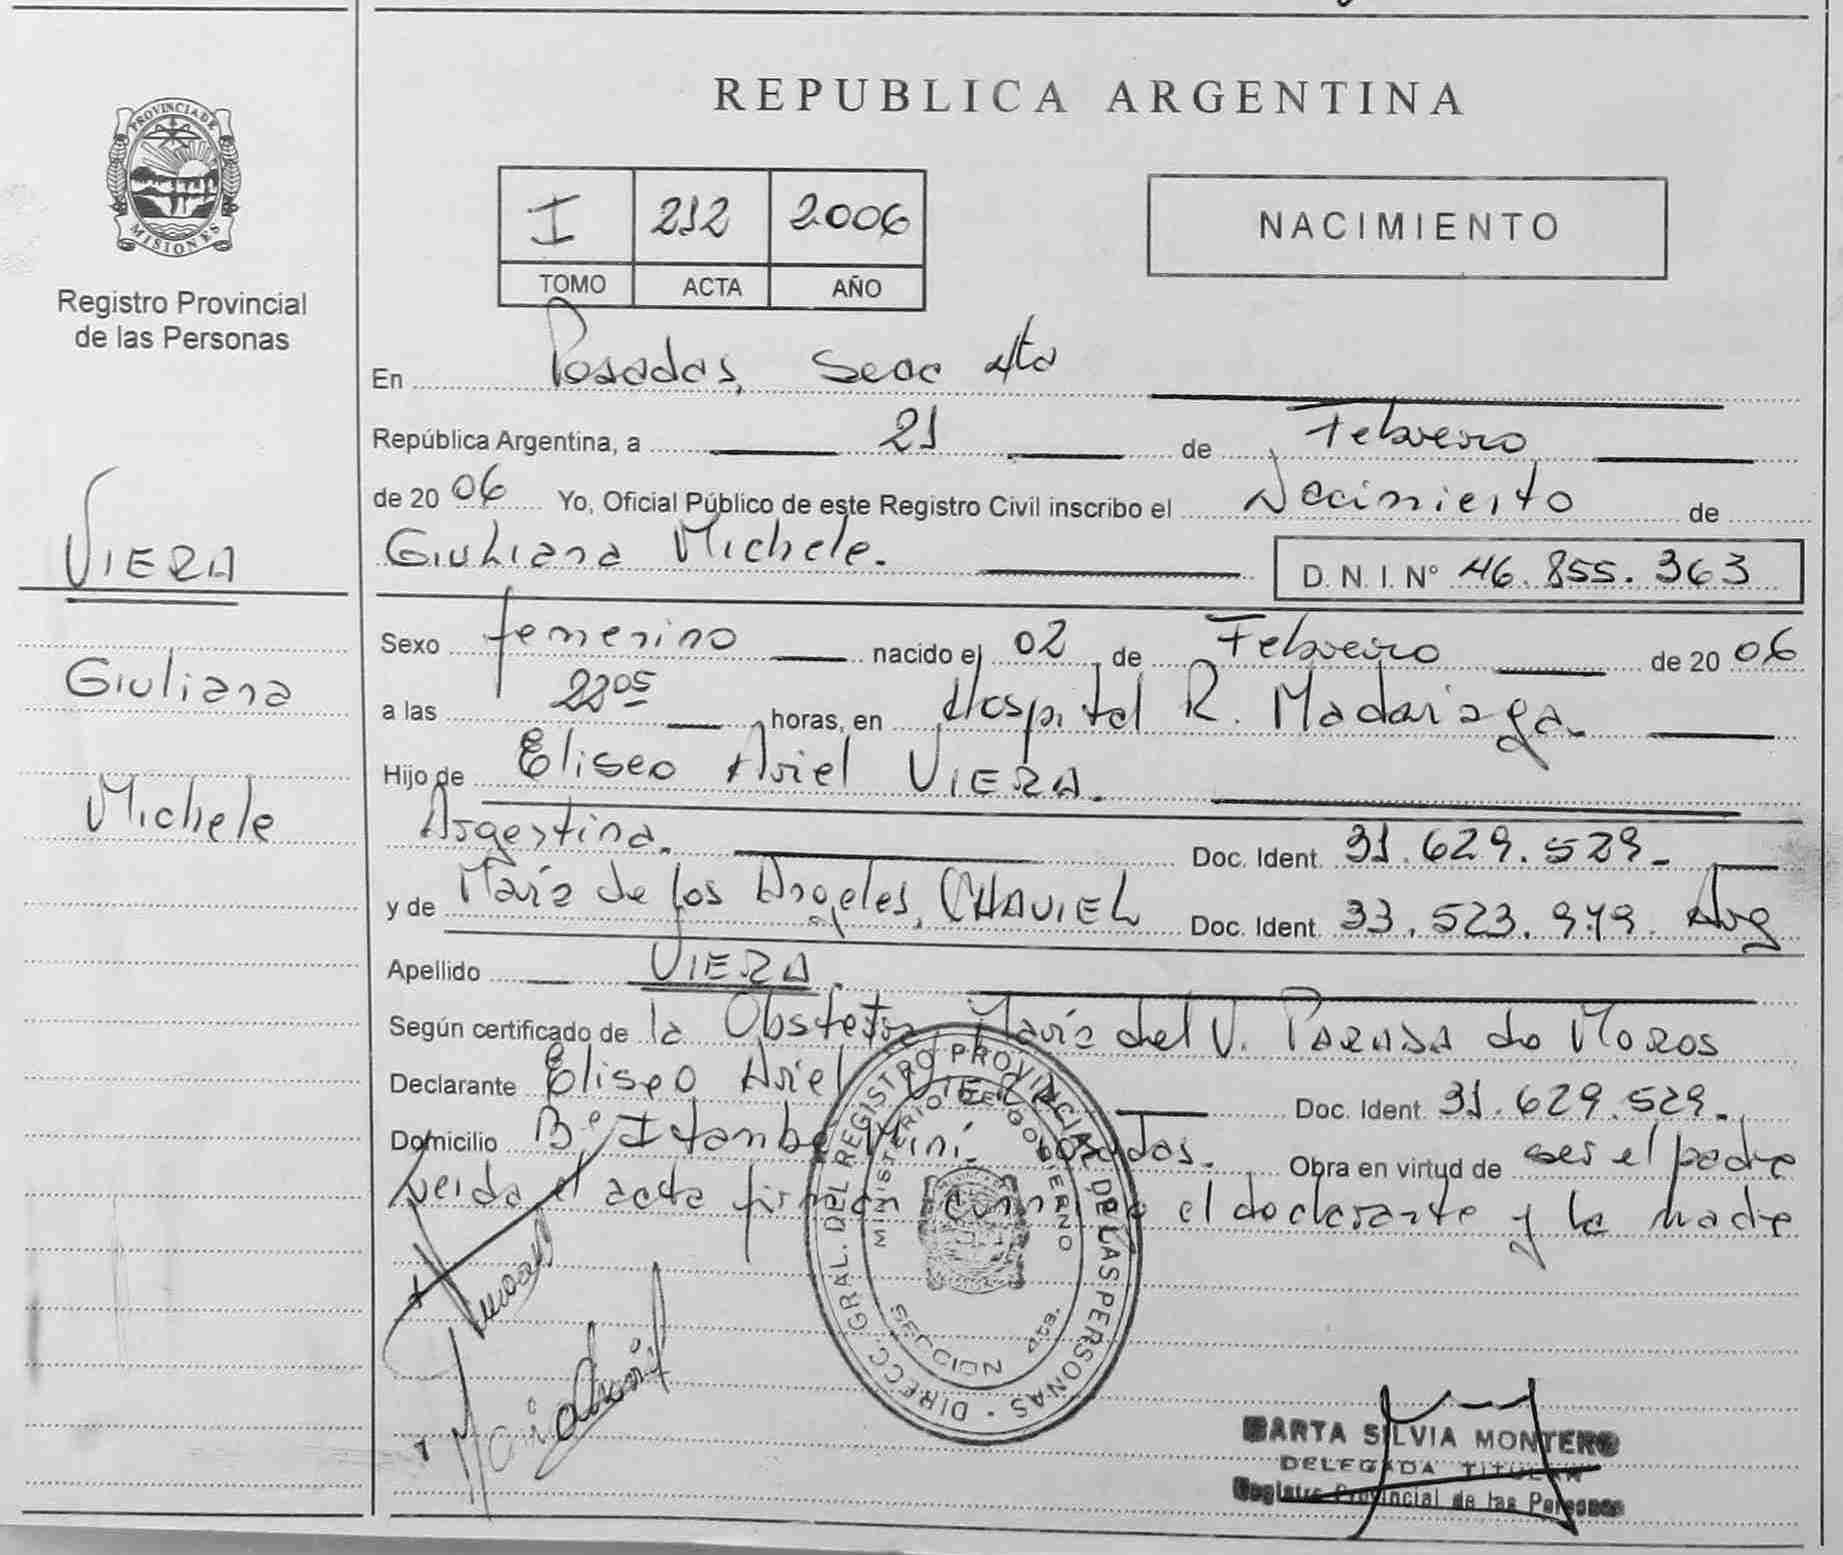 PROVINCIA DE
MISIONES
Registro Provincial
de las Personas
VIERA
Giuliana
Michele
REPUBLICA ARGENTINA
I 212 2006
TOMO ACTA AÑO
NACIMIENTO
En Posadas, Secc 4ta
República Argentina, a 21 de Febrero
de 2006 Yo, Oficial Público de este Registro Civil inscribo el Nacimiento de
Giuliana Michele.
D. N. I. N° 46.855.363
Sexo femenino nacido el 02 de Febrero de 2006
a las 22 05 horas, en Hospital R. Madariaga.
Hijo de Eliseo Ariel VIERA.
Argentina. Doc. Ident. 31.629.529.-
y de María de los Angeles, CHAVIEL Doc. Ident. 33.523.979. Arg
Apellido VIERA.
Según certificado de la Obstetra María del V. PARADA de MOROS
Declarante Eliseo Ariel VIERA Doc. Ident. 31.629.529.
Domicilio B° Itambé Miní. Posadas. Obra en virtud de ser el padre
Leida el acta firman conmigo el declarante y la madre
DIRECC. GRAL. DEL REGISTRO PROVINCIAL DE LAS PERSONAS
MINISTERIO DE GOBIERNO
SECCION 4ta.
MARTA SILVIA MONTERO
DELEGADA TITULAR
Registro Provincial de las Personas